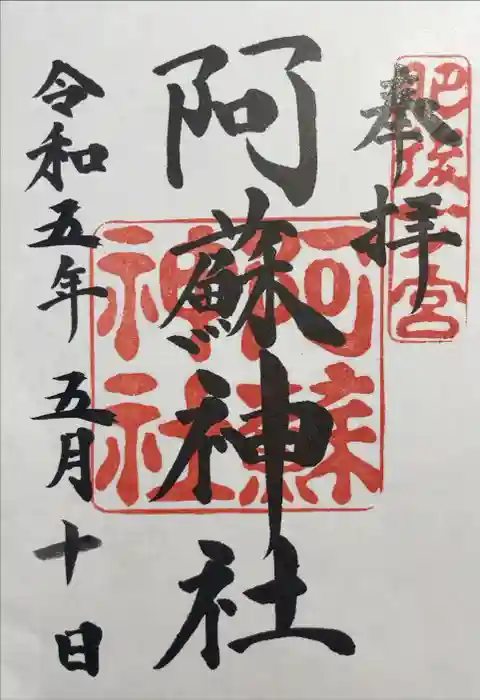 奉拝
肥後一宮
阿蘇神社
阿蘇
神社
令和五年 五月十日